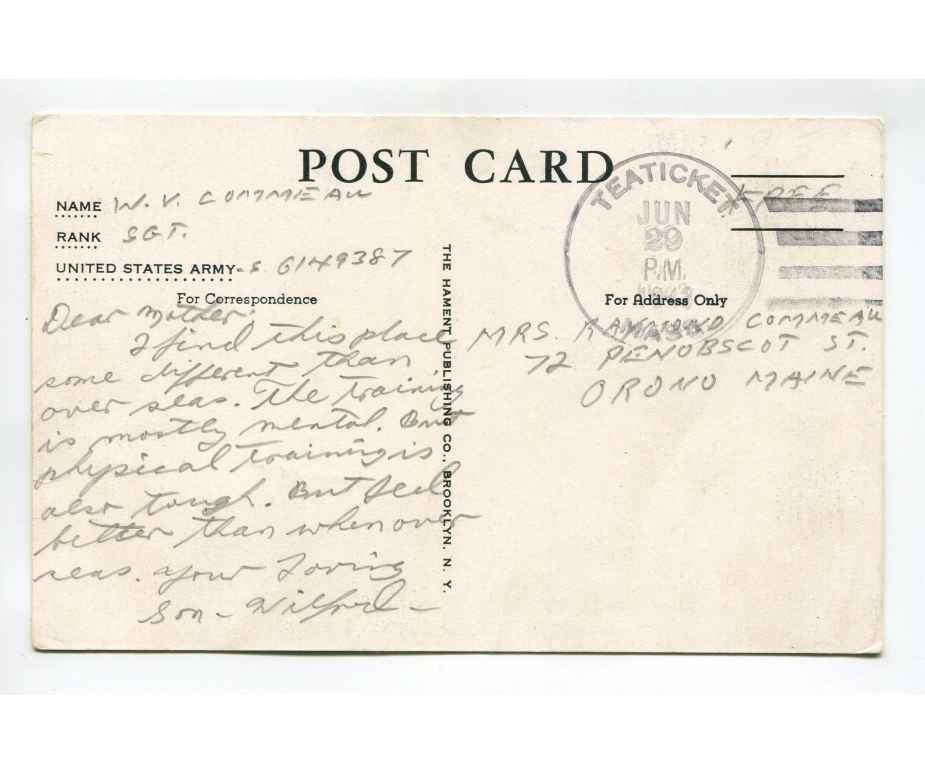 POST CARD
NAME W. V. COMMEAU
RANK SGT.
UNITED STATES ARMY-S 6149387
For Correspondence
Dear Mother:
I find this place
some different than
over seas. The training
is mostly mental. But
physical training is
also tough. But feel
better than when over
seas. your Loving
Son - Wilfred -
THE HAMENT PUBLISHING CO., BROOKLYN, N. Y.
TEATICKET
JUN
29
P.M.
MASS
FREE
For Address Only
MRS. RAYMOND COMMEAU
72 PENOBSCOT ST.
ORONO MAINE